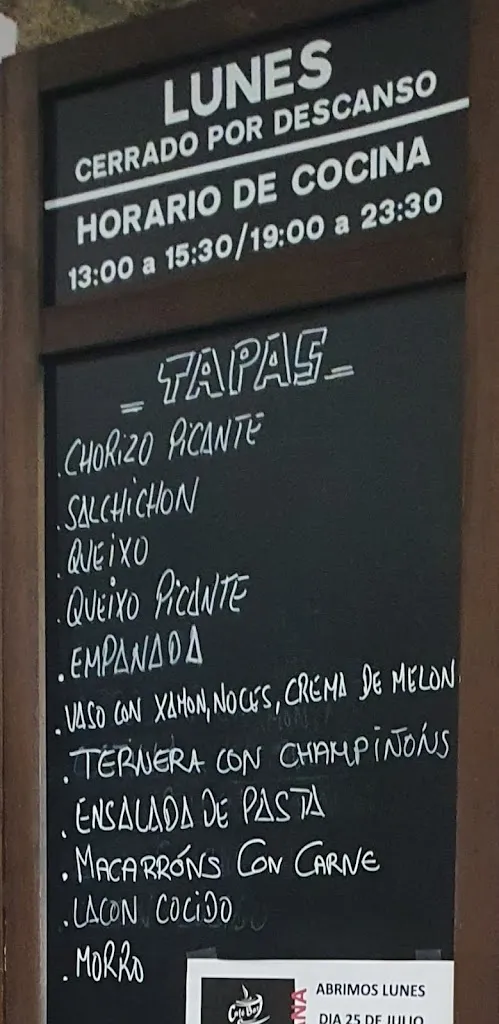 LUNES
CERRADO POR DESCANSO
HORARIO DE COCINA
13:00 a 15:30/19:00 a 23:30
- TAPAS -
. CHORIZO PICANTE
. SALCHICHON
. QUEIXO
. QUEIXO PICANTE
. EMPANADA
. VASO CON XAMON, NOCES, CREMA DE MELON
. TERNERA CON CHAMPIÑÓNS
. ENSALADA DE PASTA
. MACARRÓNS CON CARNE
. LACON COCIDO
. MORRO
ABRIMOS LUNES
DIA 25 DE JULIO